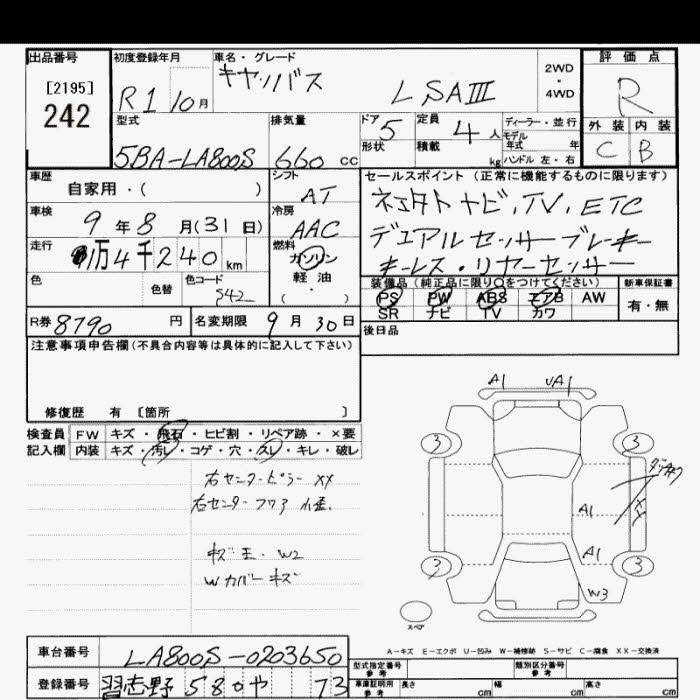 出品番号 初度登録年月 車名・グレード 評価点
[2195] 242
R1 10月 キャンバス LSAIII 2WD・4WD R
型式 排気量 ドア 定員 ディーラー・並行 外装 内装
5BA-LA800S 660 cc 5 4人 モデル年式 年 C B
形状 積載 kg ハンドル 左・右
車歴 シフト セールスポイント(正常に機能するものに限ります)
自家用・( ) AT
車検 冷房 ネオクトナビ、TV、ETC
9年8月(31日) AAC デュアルセンサーブレーキ
走行 燃料 キーレス・リヤーセンサー
1万4千240km ガソリン
軽油
・
( )
色 色替 色コード
S42
装備品(純正品に限り○をつけてください) 新車保証書
PS PW ABS エアB AW 有・無
SR ナビ TV カワ
R券 8790円 名変期限 9月30日 後日品
注意事項申告欄(不具合内容等は具体的に記入して下さい)
修復歴 有 [箇所 ]
検査員 FW キズ・飛石・ヒビ割・リペア跡・×要
記入欄 内装 キズ・汚レ・コゲ・穴・スレ・キレ・破レ
A1 UA1
右センターピラー XX
右センターフロア 小歪
3 3
A1 XX
キズ 王、W2
Wカバー キズ
A1
3 3
W3
スペア
A-キズ E-エクボ U-凹み W-補修跡 S-サビ C-腐食 XX-交換済
車台番号 LA800S-0203650
型式指定番号 参考 類別区分番号 参考
登録番号 習志野 580 や 73
車庫証明用 参考 長さ cm 幅 cm 高さ cm